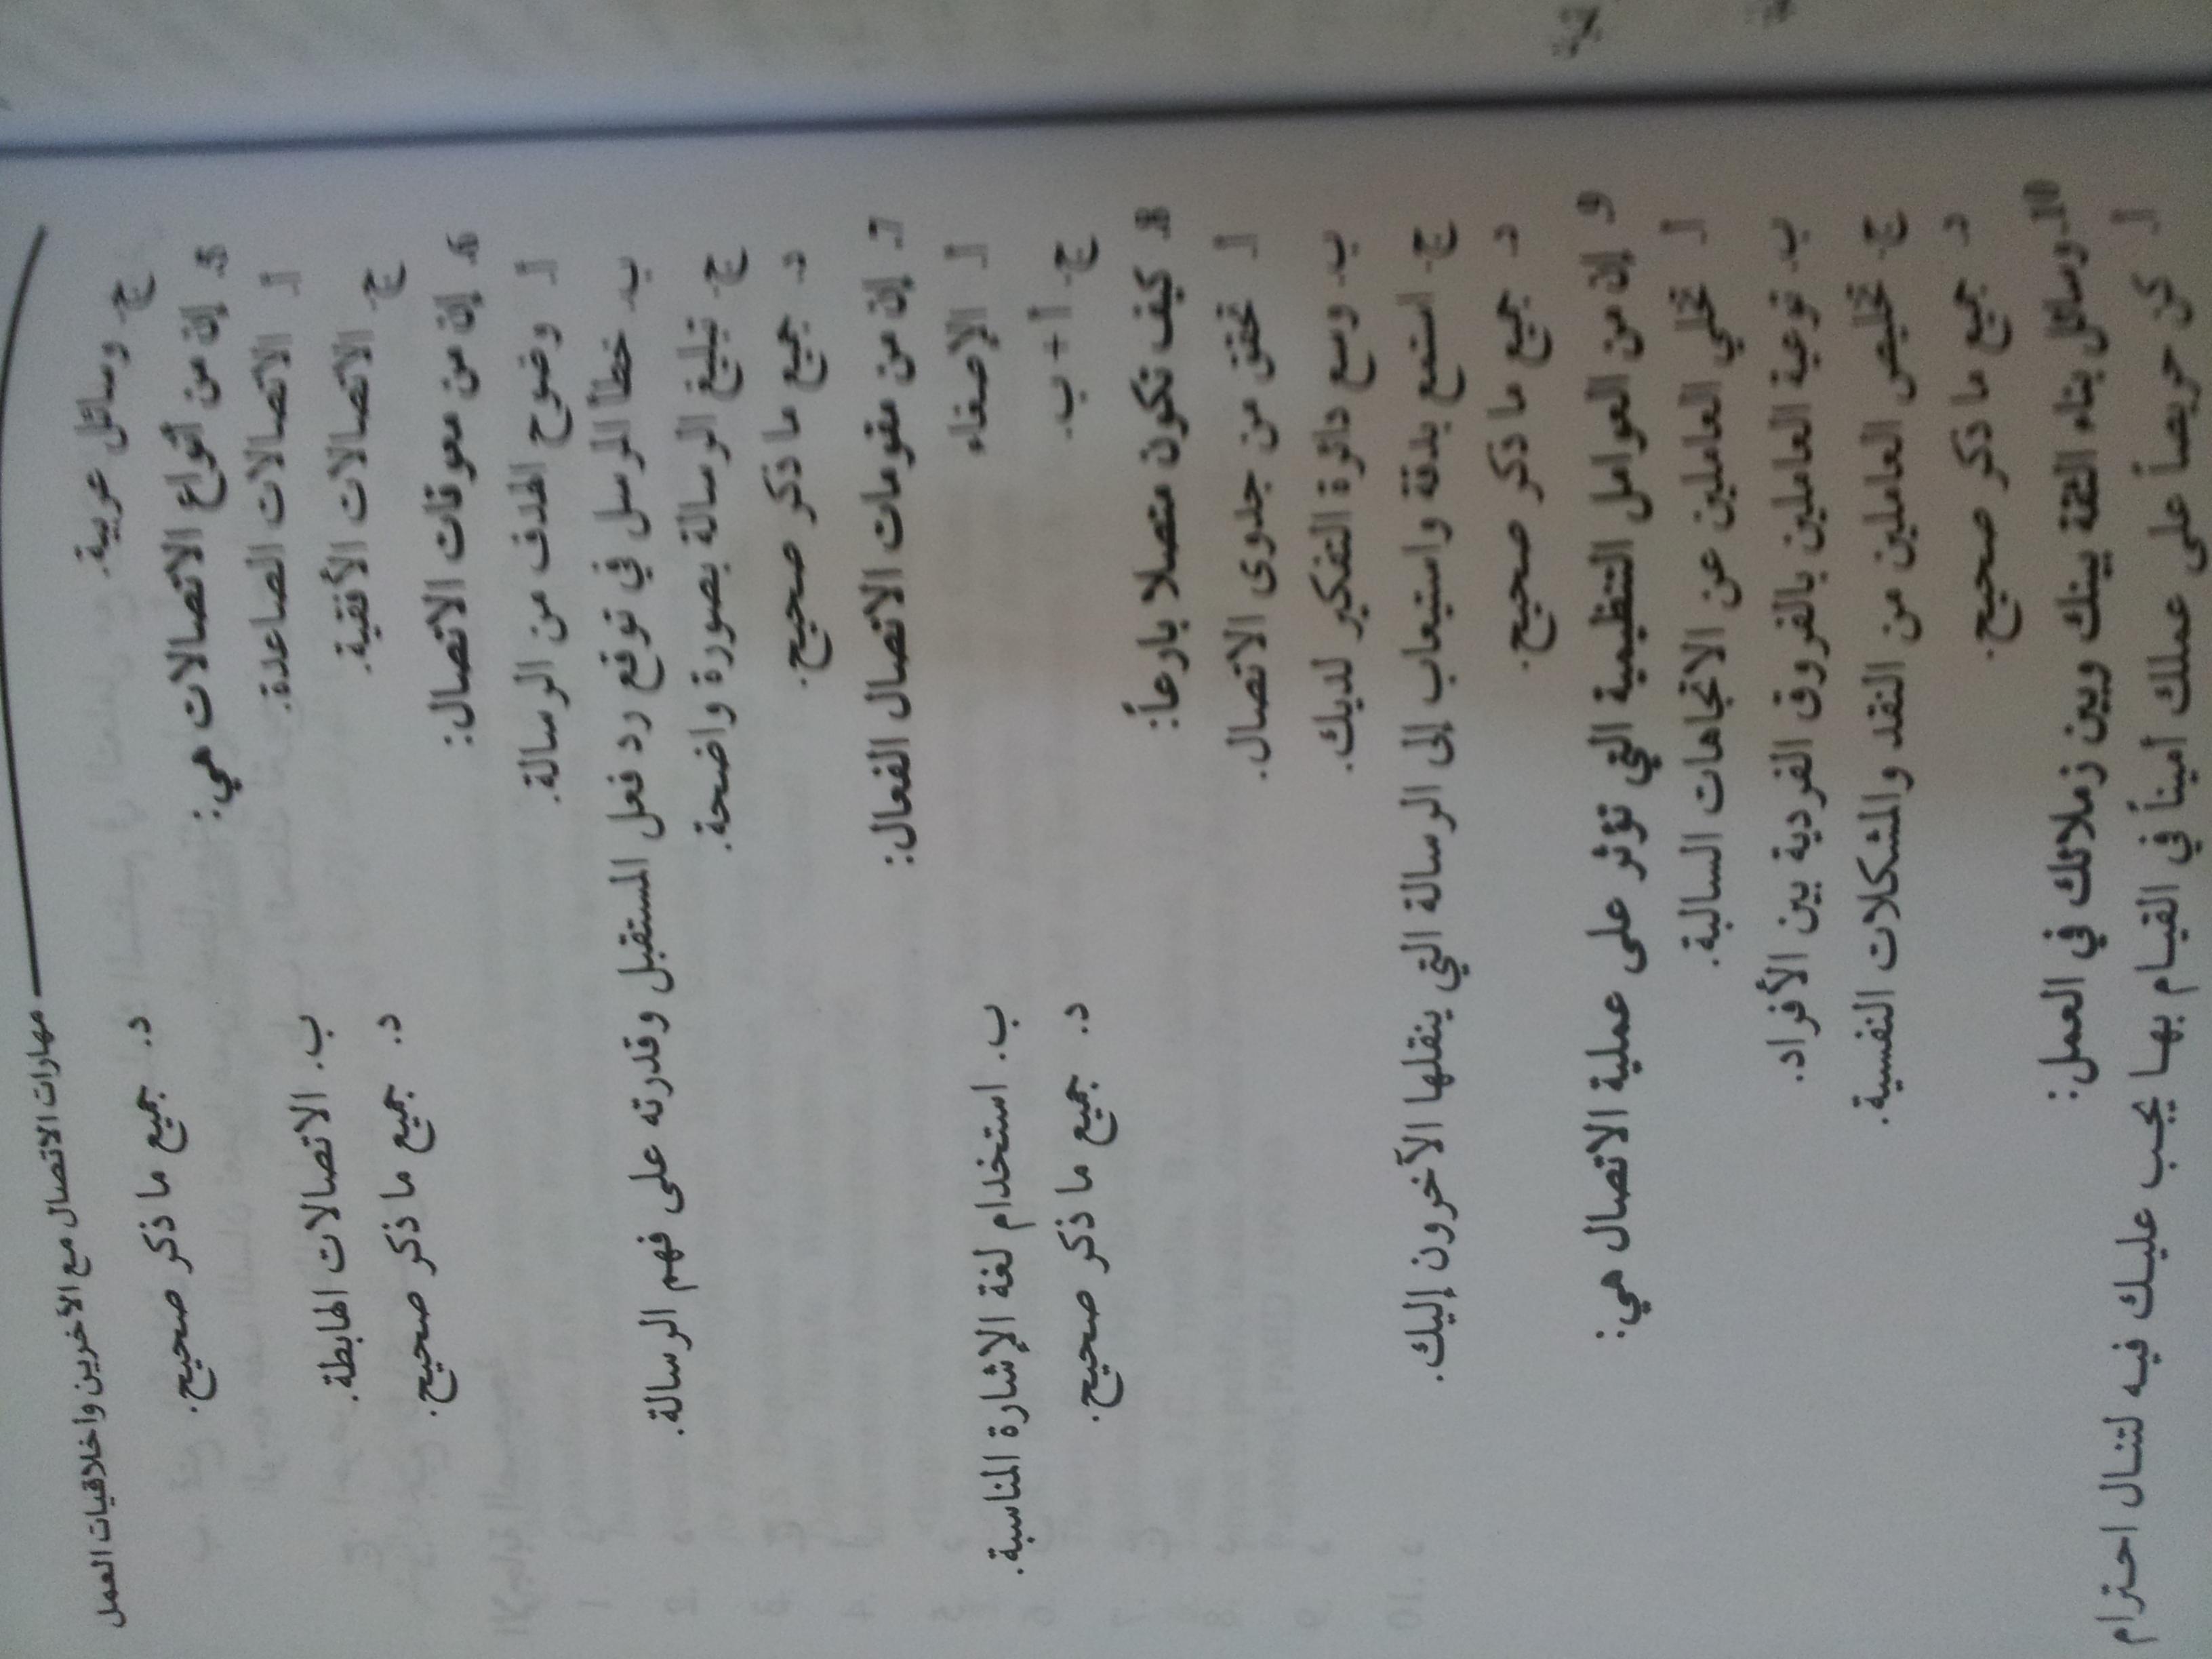 مهارات الاتصال مع الآخرين واخلاقيات العمل
ج. وسائل عربية. د. جميع ما ذكر صحيح.
5. إن من أنواع الاتصالات هي:
أ. الاتصالات الصاعدة. ب. الاتصالات الهابطة.
ج. الاتصالات الأفقية. د. جميع ما ذكر صحيح.
6. إن من معوقات الاتصال:
أ. وضوح الهدف من الرسالة.
ب. خطأ المرسل في توقع رد فعل المستقبل وقدرته على فهم الرسالة.
ج. تبليغ الرسالة بصورة واضحة.
د. جميع ما ذكر صحيح.
7. إن من مقومات الاتصال الفعال:
أ. الإصغاء ب. استخدام لغة الإشارة المناسبة.
ج. أ + ب. د. جميع ما ذكر صحيح.
8. كيف تكون متصلا بارعاً:
أ. تحقق من جدوى الاتصال.
ب. وسع دائرة التفكير لديك.
ج. استمع بدقة واستيعاب إلى الرسالة التي ينقلها الآخرون إليك.
د. جميع ما ذكر صحيح.
9. إن من العوامل التنظيمية التي تؤثر على عملية الاتصال هي:
أ. تخلي العاملين عن الاتجاهات السالبة.
ب. توعية العاملين بالفروق الفردية بين الأفراد.
ج. تخليص العاملين من العقد والمشكلات النفسية.
د. جميع ما ذكر صحيح.
10. وسائل بناء الثقة بينك وبين زملائك في العمل:
أ. كن حريصاً على عملك أميناً في القيام بها يجب عليك فيه لتنال احترام